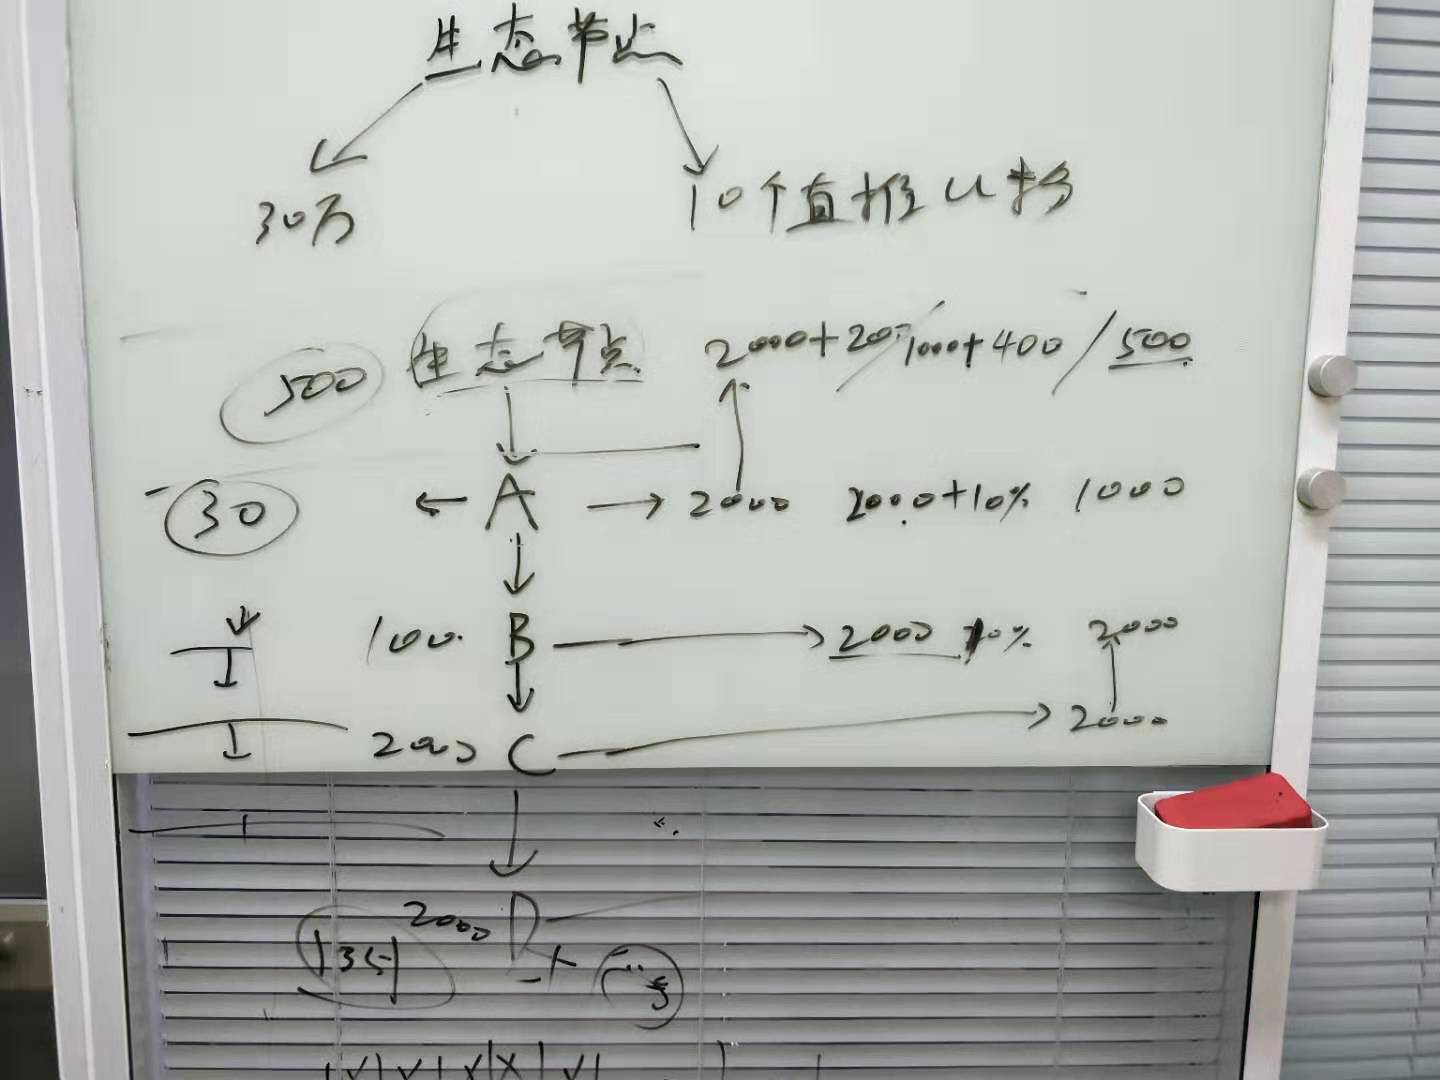 生态节点
30万
10个直推
500 生态节点 2000+20 / 1000+400 / 500
30 A 2000 2000+10% 1000
100 B 2000 10% 2000
C 2000
2000 D